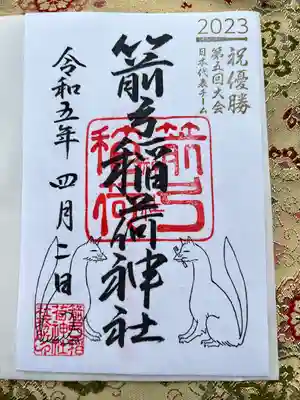 2023
祝優勝
第五回大会
日本代表チーム
箭弓稲荷神社
令和五年 四月二日
箭弓稲荷